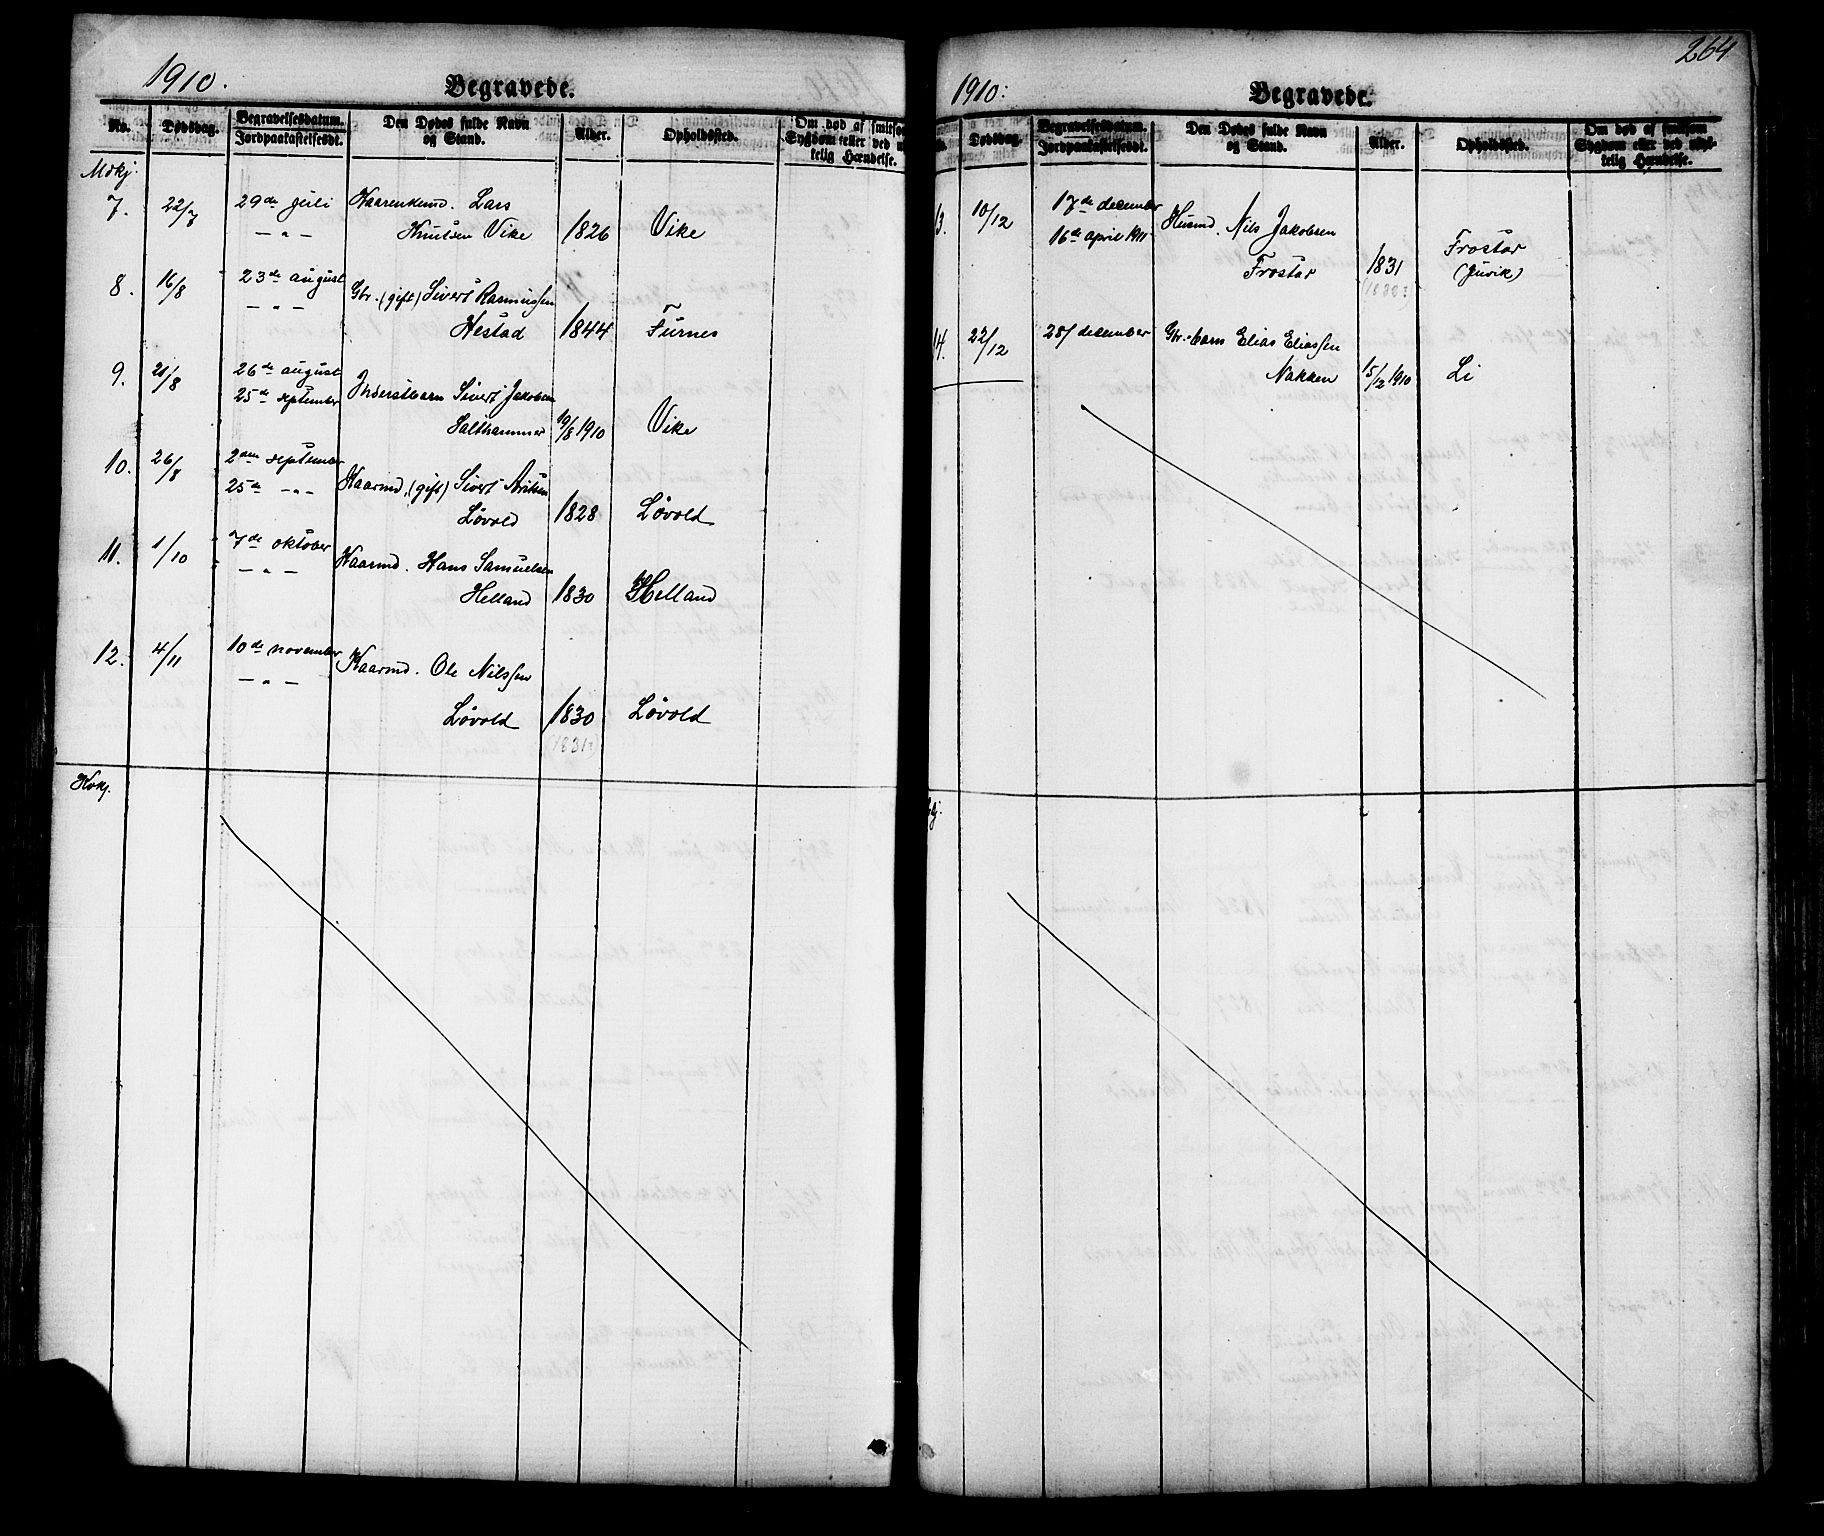 1910.
Begravede.
No.
Dødsdag.
Begravelsesdatum.
Jordpaakastelsesdt.
Den Dødes fulde Navn
og Stand.
Alder.
Opholdssted.
Om død af smitsom
Sygdom eller ved
telig Hændelse.
Mskj.
7. 22/7 29de juli Kaarenkemd. Lars
— " — Knutsen Vike 1826 Vike
8. 16/8 23de august Gbr. (gift) Sivert Rasmussen
— " — Hestad 1844 Furnes
9. 21/8 26de august
25de september Inderstbarn Sivert Jakobsen
Salthammer 19/8 1910 Vike
10. 26/8 2den september
25de — " — Kaarmd. (gift) Sivert
Løvold 1828 Løvold
11. 1/10 7de oktober Kaarmd. Hans Samuelsen
— " — Helland 1830 Helland
12. 4/11 10de november Kaarmd. Ole Nilssen
— " — Løvold 1830 Løvold
(1831?)
Kvkj.
264
1910:
Begravede.
Dødsdag.
Begravelsesdatum.
Jordpaakastelsesdt.
Den Dødes fulde Navn
og Stand.
Alder.
Opholdssted.
Om død af smitsom
Sygdom eller ved ulyk-
telig Hændelse.
13. 10/12 17de december Husmd. Nils Jakobsen
16de april 1911 Frostar 1831 Frostar
(Juvik)
14. 22/12 28/ december Gbr.-barn Elias Eliassen
Nakken 15/12 1910 Li